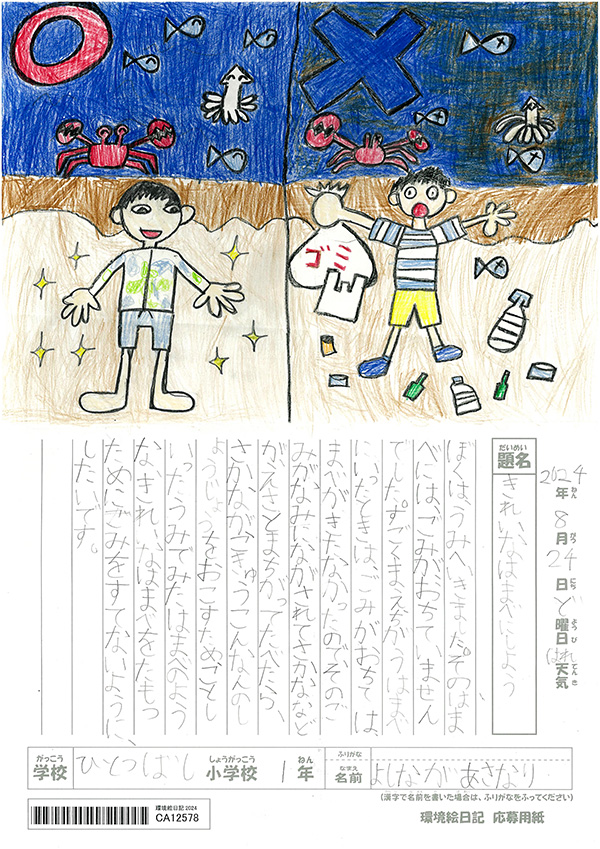 ゴミ
2024年ねん8月がつ24日にちど曜日ようびはれ天気てんき
だいめい
題名
きれいなはまべにしよう
ぼくは、うみへいきました。そのはま
べには、ごみがおちていません
でした。すごくまえちがうはまべ
にいったときは、ごみがおちては
まべがきたなかったのでそのご
みがなみにながされてさかななど
がえさとまちがってたべたら、
さかながこきゅうこんなんのし
ょうじょうをおこすため、ことし
いったうみでみたはまべのよう
なきれいなはまべをたもつ
ためにごみをすてないように、
したいです。
がっこう しょうがっこう ねん
学校 ひとつばし 小学校 1年
ふりがな
なまえ
名前 よしなが あさなり
(漢字で名前を書いた場合は、ふりがなをふってください)
環境絵日記2024
CA12578
環境絵日記 応募用紙